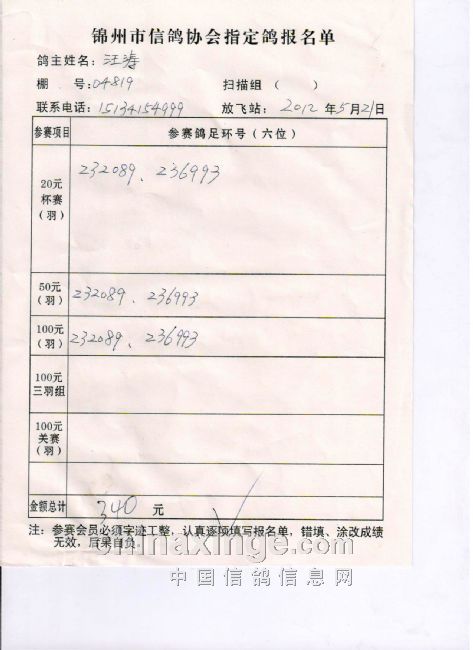 锦州市信鸽协会指定鸽报名单
鸽主姓名：汪涛
棚 号：04819 扫描组（ ）
联系电话：15134154999 放飞站：2012年5月21日
参赛项目 参赛鸽足环号（六位）
20元
杯赛
（羽）
232089、236993
50元
（羽）
232089、236993
100元
（羽）
232089、236993
100元
三羽组
100元
美赛
（羽）
金额总计 340 元
注：参赛会员必须字迹工整，认真逐项填写报名单，错填、涂改成绩
无效，后果自负。
chinaxinge.com
中国信鸽信息网